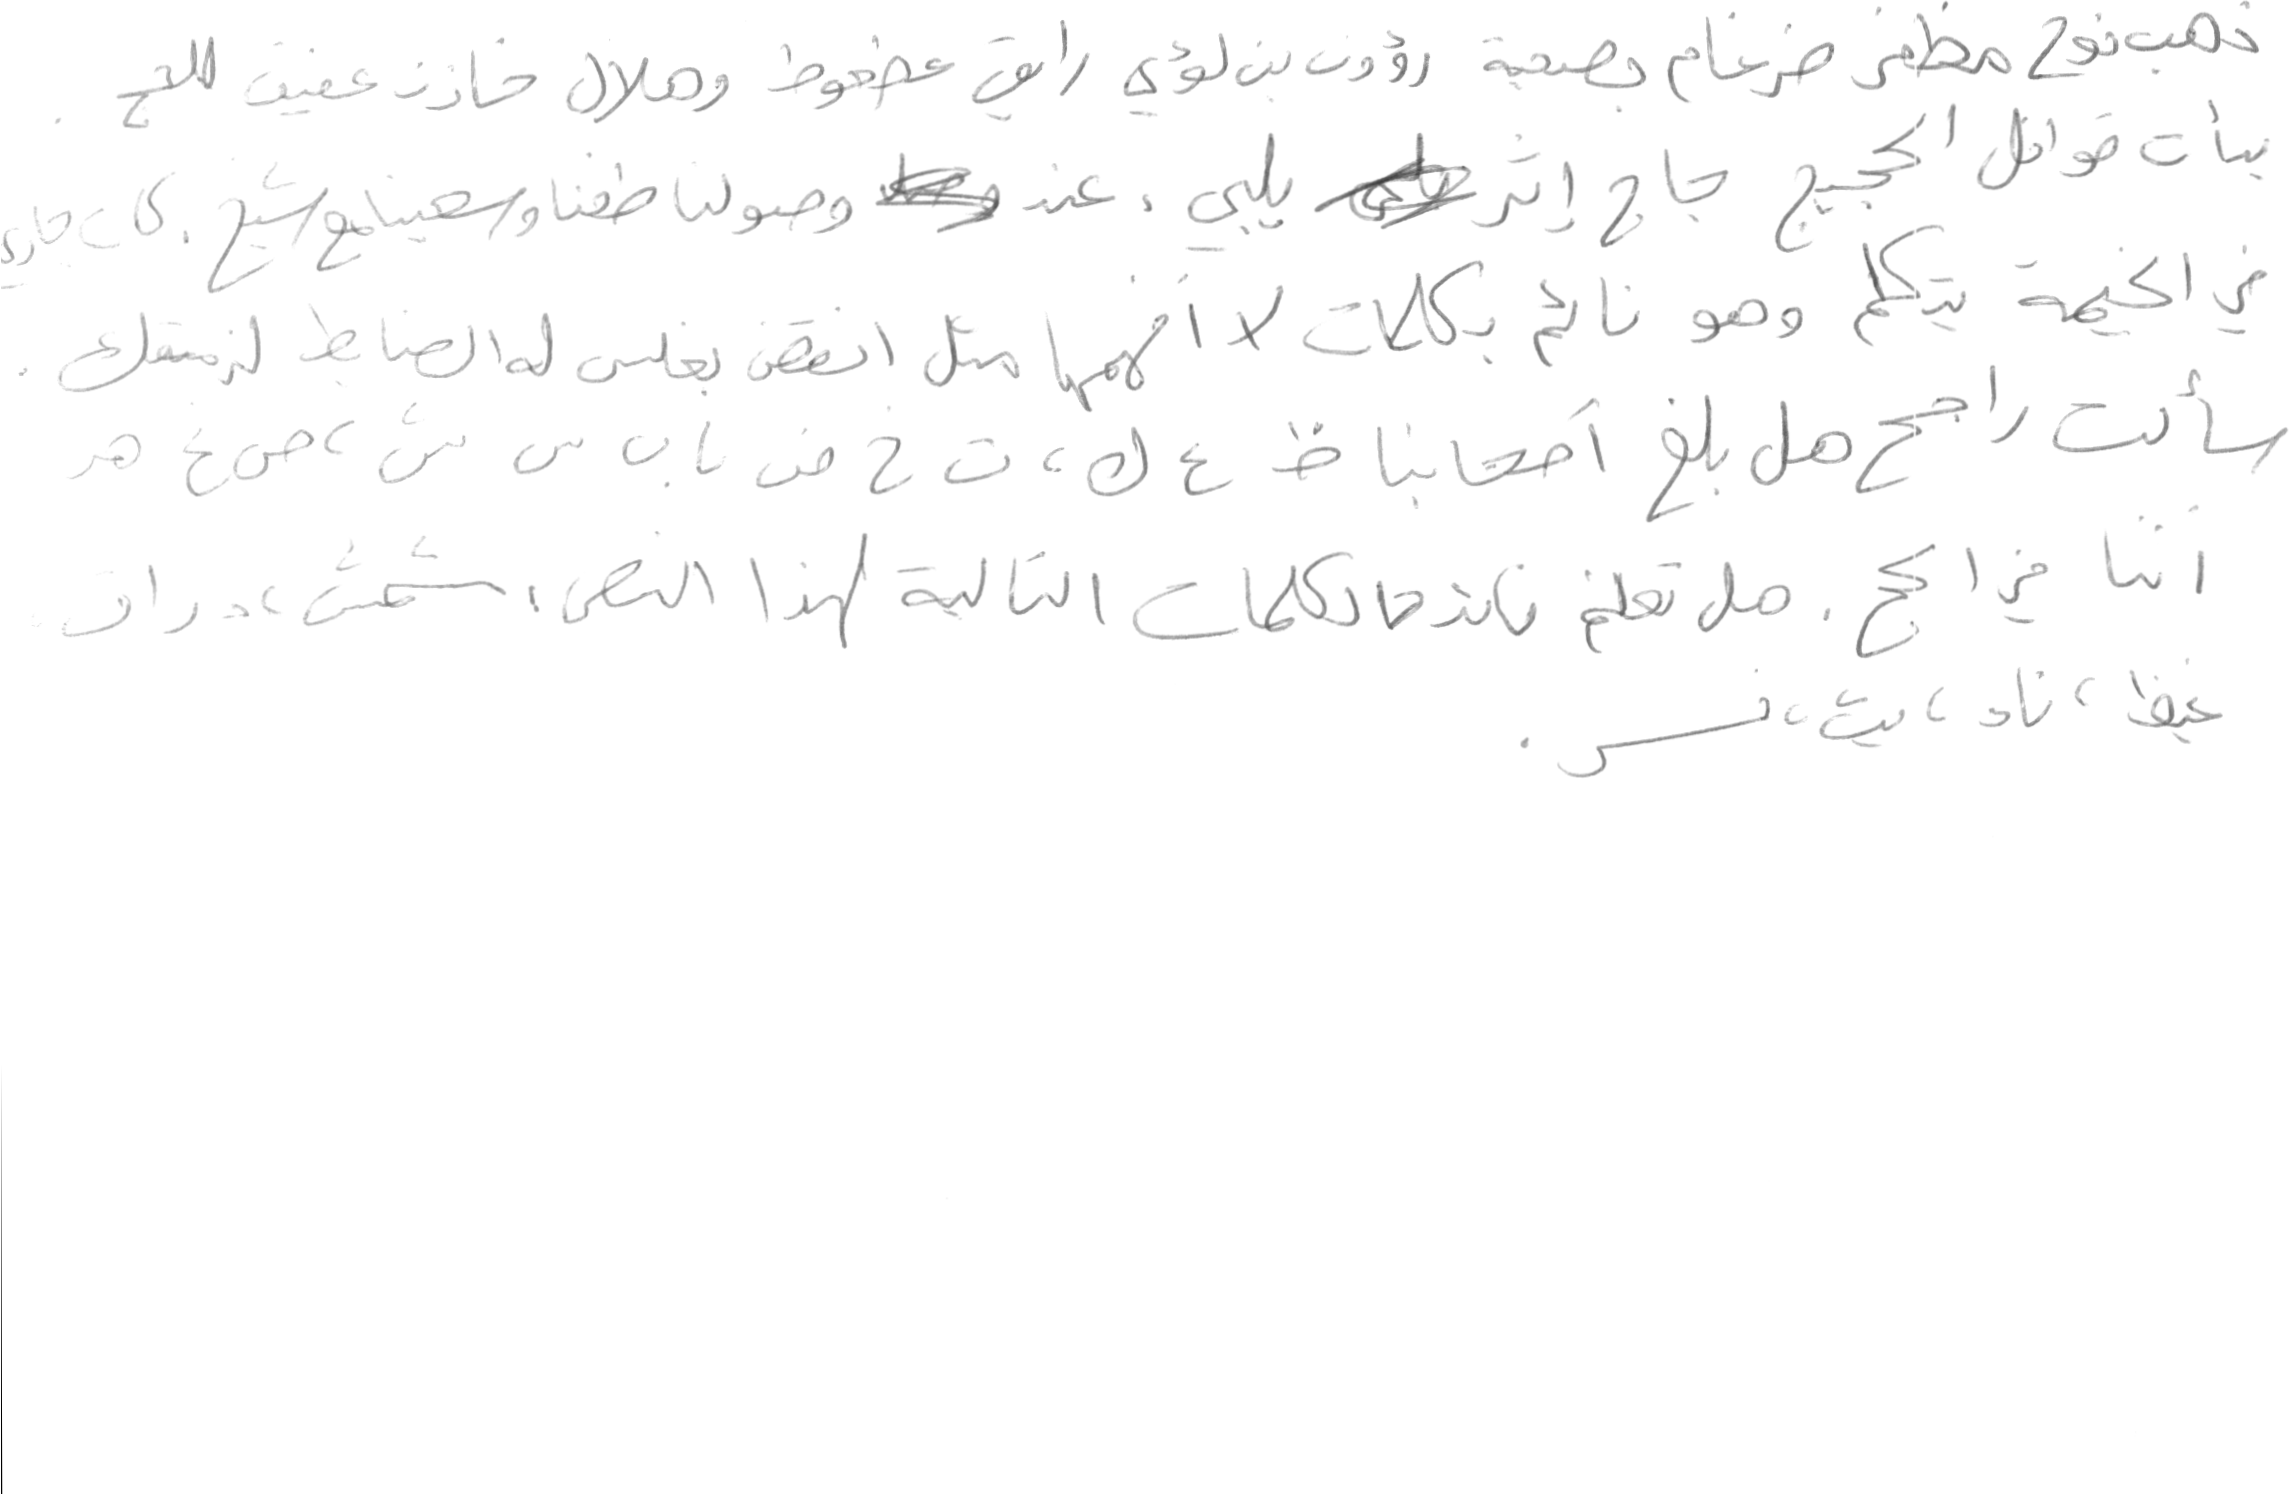 ذهب نوح مظفر ضرغام بصحبة رؤوف بن لؤي رايق عضغوط وهلال خازن عفيف للحج .
بدأت قوافل الحجيج حاج إثر يلبي . عند وصولنا طفنا وسعينا مع شيخ . كان جاري
في الخيمة يتكلم وهو نائم بكلمات لا أفهمها مثل انفض بغلس له الضابط
سألت راجح هل بلغ أصحابنا ظ ع ك ، ت خ ض نا ب س ش ، ص غ هـ
أننا في الحج . هل تعلم التالية لهذا النص : ، د راق ،
غيظ ، ناد ، يث ،